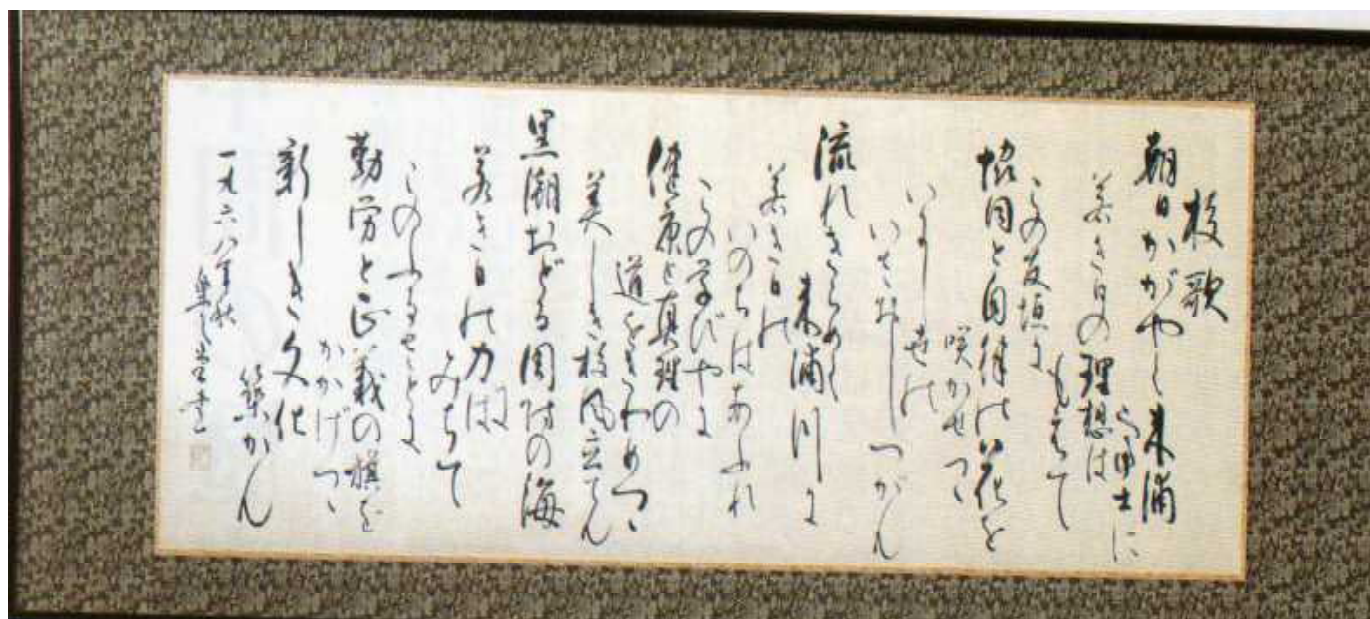 校歌
朝日かがやく来浦
の海に
若き日の理想は
もえて
この友垣に
協同と自律の花を
咲かせつつ
いにしえの
いさおしつがん
流れきらめく
来浦川に
若き日の
いのちはあふれ
この学びやに
健康と真理の
道をきわめつつ
美しき校風立てん
黒潮おどる周防の海
に
若き日の力は
みちて
このふるさとに
勤労と正義の旗を
かかげつつ
新しき文化
築かん
一九六八年秋